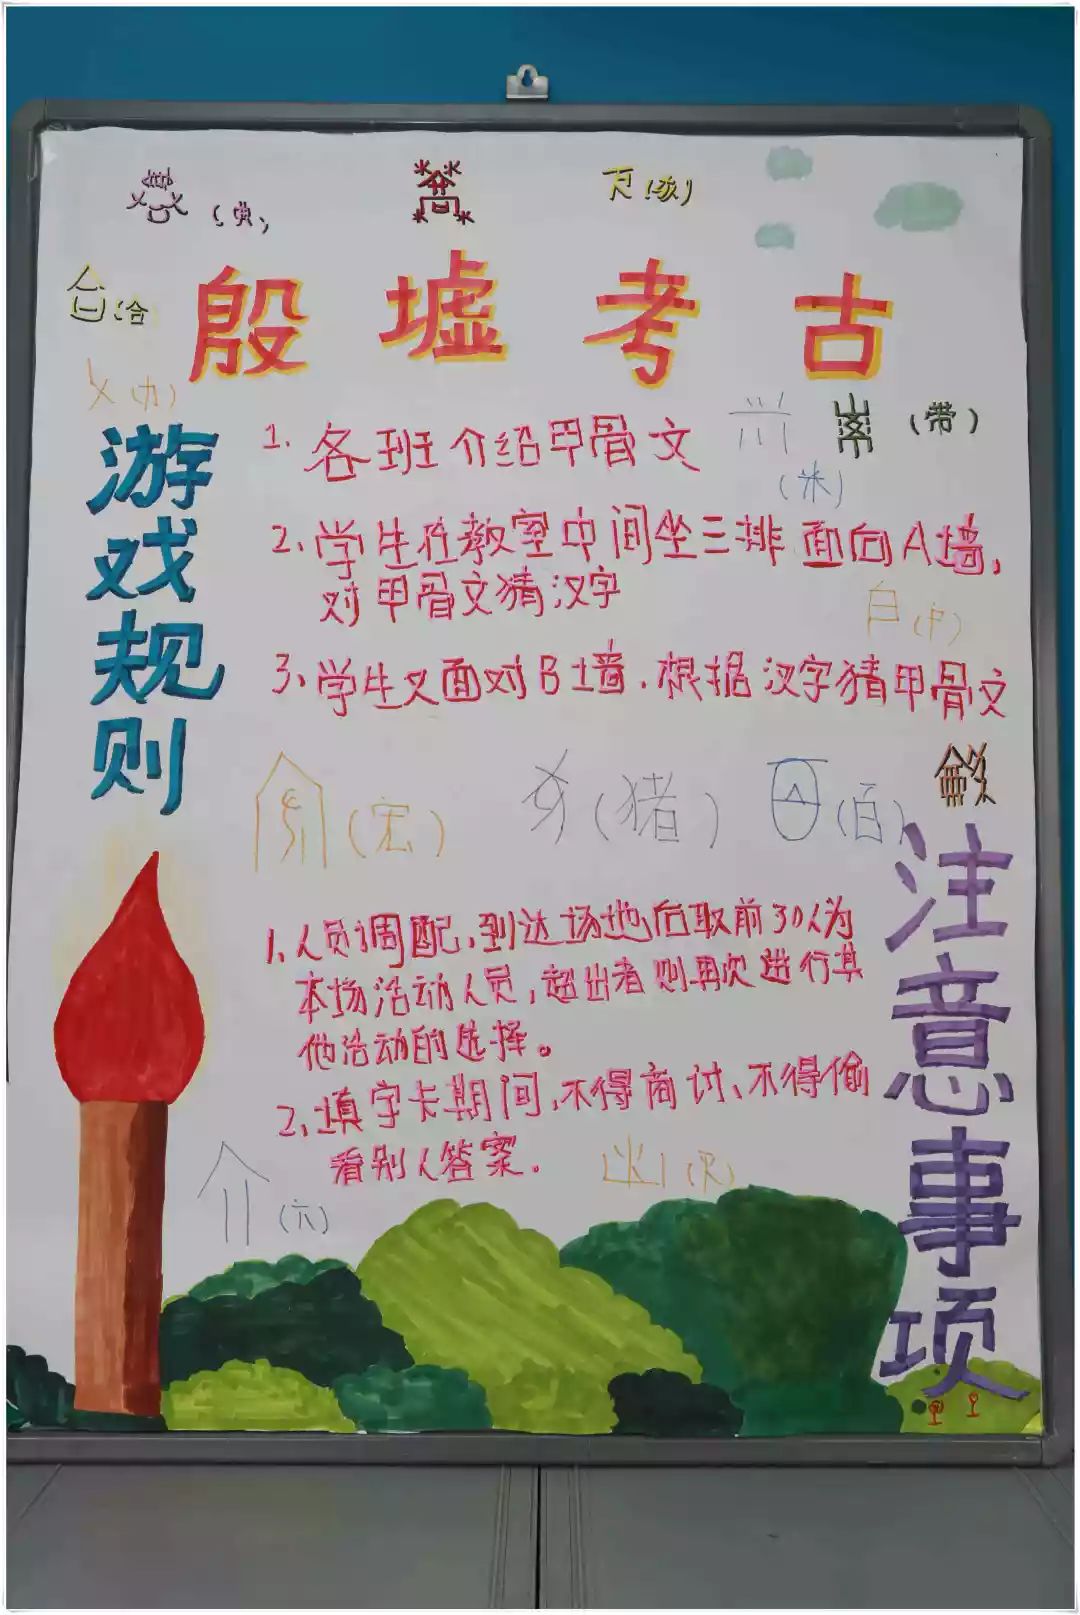 殷墟考古
游戏规则
1. 各班介绍甲骨文
(带)
(米)
2、学生在教室中间坐三排面向A墙,
对甲骨文猜汉字
3、学生又面对B墙.根据汉字猜甲骨文
(宏)
(猪)
(百)
注意事项
1、人员调配,到达场地后取前30人为
本场活动人员,超出者则再次进行其
他活动的选择。
2、填字卡期间,不得商讨、不得偷
看别人答案.
(六)